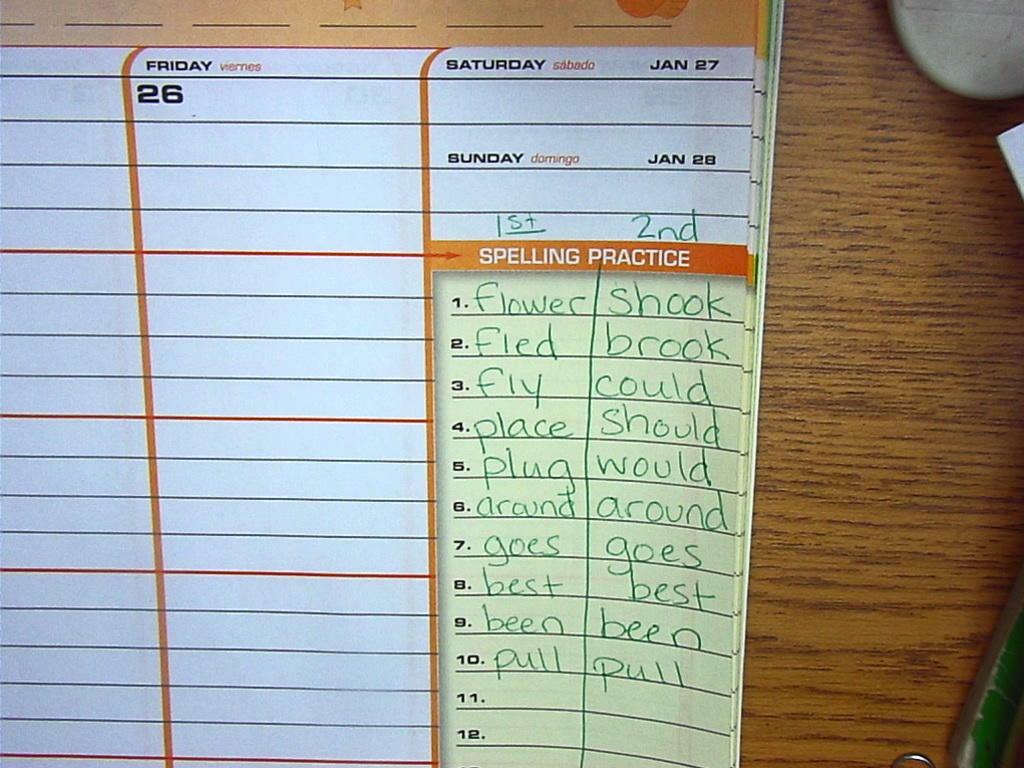 FRIDAY viernes
26
SATURDAY sábado JAN 27
SUNDAY domingo JAN 28
1st 2nd
SPELLING PRACTICE
1. flower shook
2. fled brook
3. fly could
4. place should
5. plug would
6. around around
7. goes goes
8. best best
9. been been
10. pull pull
11.
12.